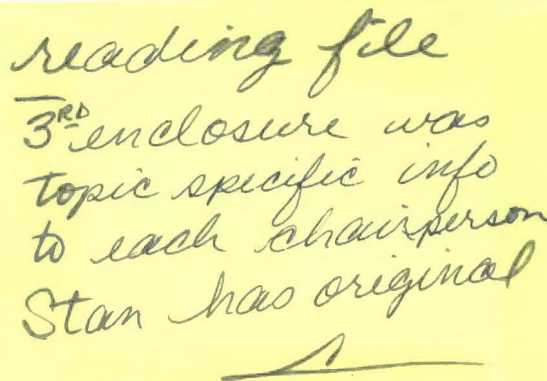 reading file
3RD enclosure was
topic specific info
to each chairperson
Stan has original